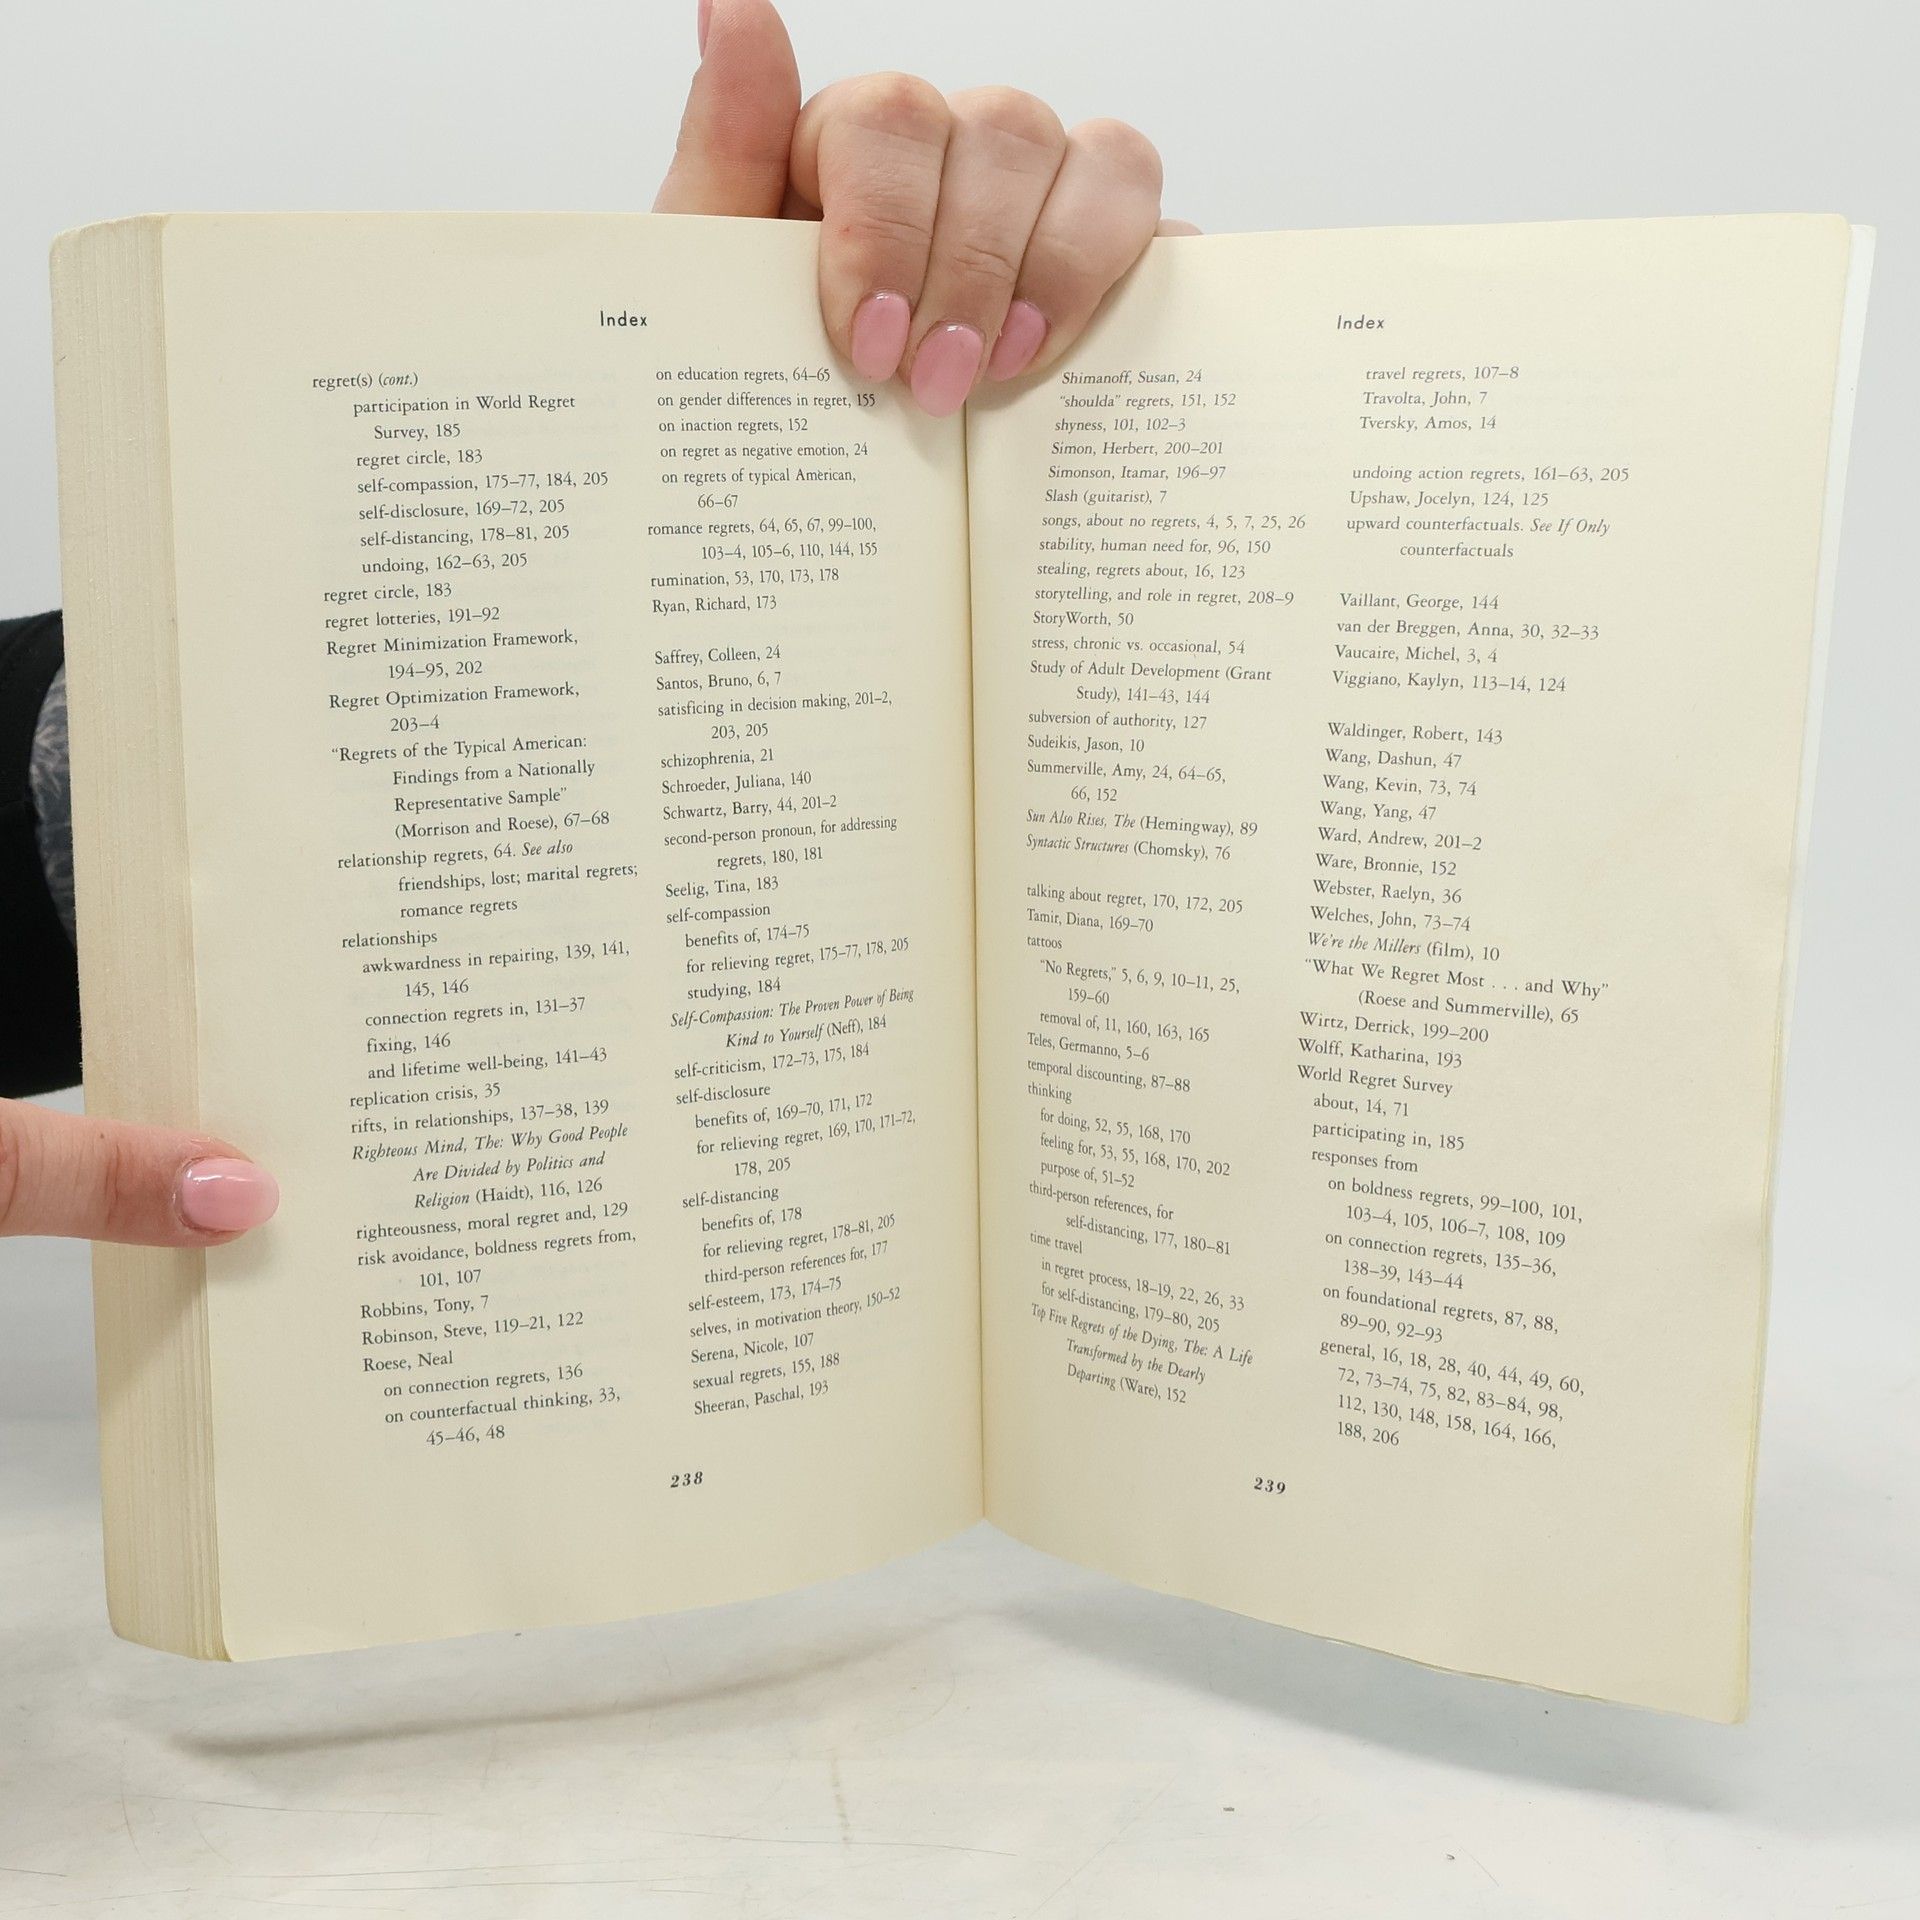 Index
regret(s) (cont.)
participation in World Regret
Survey, 185
regret circle, 183
self-compassion, 175–77, 184, 205
self-disclosure, 169–72, 205
self-distancing, 178–81, 205
undoing, 162–63, 205
regret circle, 183
regret lotteries, 191–92
Regret Minimization Framework,
194–95, 202
Regret Optimization Framework,
203–4
“Regrets of the Typical American:
Findings from a Nationally
Representative Sample”
(Morrison and Roese), 67–68
relationship regrets, 64. See also
friendships, lost; marital regrets;
romance regrets
relationships
awkwardness in repairing, 139, 141,
145, 146
connection regrets in, 131–37
fixing, 146
and lifetime well-being, 141–43
replication crisis, 35
rifts, in relationships, 137–38, 139
Righteous Mind, The: Why Good People
Are Divided by Politics and
Religion (Haidt), 116, 126
righteousness, moral regret and, 129
risk avoidance, boldness regrets from,
101, 107
Robbins, Tony, 7
Robinson, Steve, 119–21, 122
Roese, Neal
on connection regrets, 136
on counterfactual thinking, 33,
45–46, 48
on education regrets, 64–65
on gender differences in regret, 155
on inaction regrets, 152
on regret as negative emotion, 24
on regrets of typical American,
66–67
romance regrets, 64, 65, 67, 99–100,
103–4, 105–6, 110, 144, 155
rumination, 53, 170, 173, 178
Ryan, Richard, 173
Saffrey, Colleen, 24
Santos, Bruno, 6, 7
satisficing in decision making, 201–2,
203, 205
schizophrenia, 21
Schroeder, Juliana, 140
Schwartz, Barry, 44, 201–2
second-person pronoun, for addressing
regrets, 180, 181
Seelig, Tina, 183
self-compassion
benefits of, 174–75
for relieving regret, 175–77, 178, 205
studying, 184
Self-Compassion: The Proven Power of Being
Kind to Yourself (Neff), 184
self-criticism, 172–73, 175, 184
self-disclosure
benefits of, 169–70, 171, 172
for relieving regret, 169, 170, 171–72,
178, 205
self-distancing
benefits of, 178
for relieving regret, 178–81, 205
third-person references for, 177
self-esteem, 173, 174–75
selves, in motivation theory, 150–52
Serena, Nicole, 107
sexual regrets, 155, 188
Sheeran, Paschal, 193
238
Index
Shimanoff, Susan, 24
“shoulda” regrets, 151, 152
shyness, 101, 102–3
Simon, Herbert, 200–201
Simonson, Itamar, 196–97
Slash (guitarist), 7
songs, about no regrets, 4, 5, 7, 25, 26
stability, human need for, 96, 150
stealing, regrets about, 16, 123
storytelling, and role in regret, 208–9
StoryWorth, 50
stress, chronic vs. occasional, 54
Study of Adult Development (Grant
Study), 141–43, 144
subversion of authority, 127
Sudeikis, Jason, 10
Summerville, Amy, 24, 64–65,
66, 152
Sun Also Rises, The (Hemingway), 89
Syntactic Structures (Chomsky), 76
talking about regret, 170, 172, 205
Tamir, Diana, 169–70
tattoos
“No Regrets,” 5, 6, 9, 10–11, 25,
159–60
removal of, 11, 160, 163, 165
Teles, Germanno, 5–6
temporal discounting, 87–88
thinking
for doing, 52, 55, 168, 170
feeling for, 53, 55, 168, 170, 202
purpose of, 51–52
third-person references, for
self-distancing, 177, 180–81
time travel
in regret process, 18–19, 22, 26, 33
for self-distancing, 179–80, 205
Top Five Regrets of the Dying, The: A Life
Transformed by the Dearly
Departing (Ware), 152
travel regrets, 107–8
Travolta, John, 7
Tversky, Amos, 14
undoing action regrets, 161–63, 205
Upshaw, Jocelyn, 124, 125
upward counterfactuals. See If Only
counterfactuals
Vaillant, George, 144
van der Breggen, Anna, 30, 32–33
Vaucaire, Michel, 3, 4
Viggiano, Kaylyn, 113–14, 124
Waldinger, Robert, 143
Wang, Dashun, 47
Wang, Kevin, 73, 74
Wang, Yang, 47
Ward, Andrew, 201–2
Ware, Bronnie, 152
Webster, Raelyn, 36
Welches, John, 73–74
We’re the Millers (film), 10
“What We Regret Most . . . and Why”
(Roese and Summerville), 65
Wirtz, Derrick, 199–200
Wolff, Katharina, 193
World Regret Survey
about, 14, 71
participating in, 185
responses from
on boldness regrets, 99–100, 101,
103–4, 105, 106–7, 108, 109
on connection regrets, 135–36,
138–39, 143–44
on foundational regrets, 87, 88,
89–90, 92–93
general, 16, 18, 28, 40, 44, 49, 60,
72, 73–74, 75, 82, 83–84, 98,
112, 130, 148, 158, 164, 166,
188, 206
239